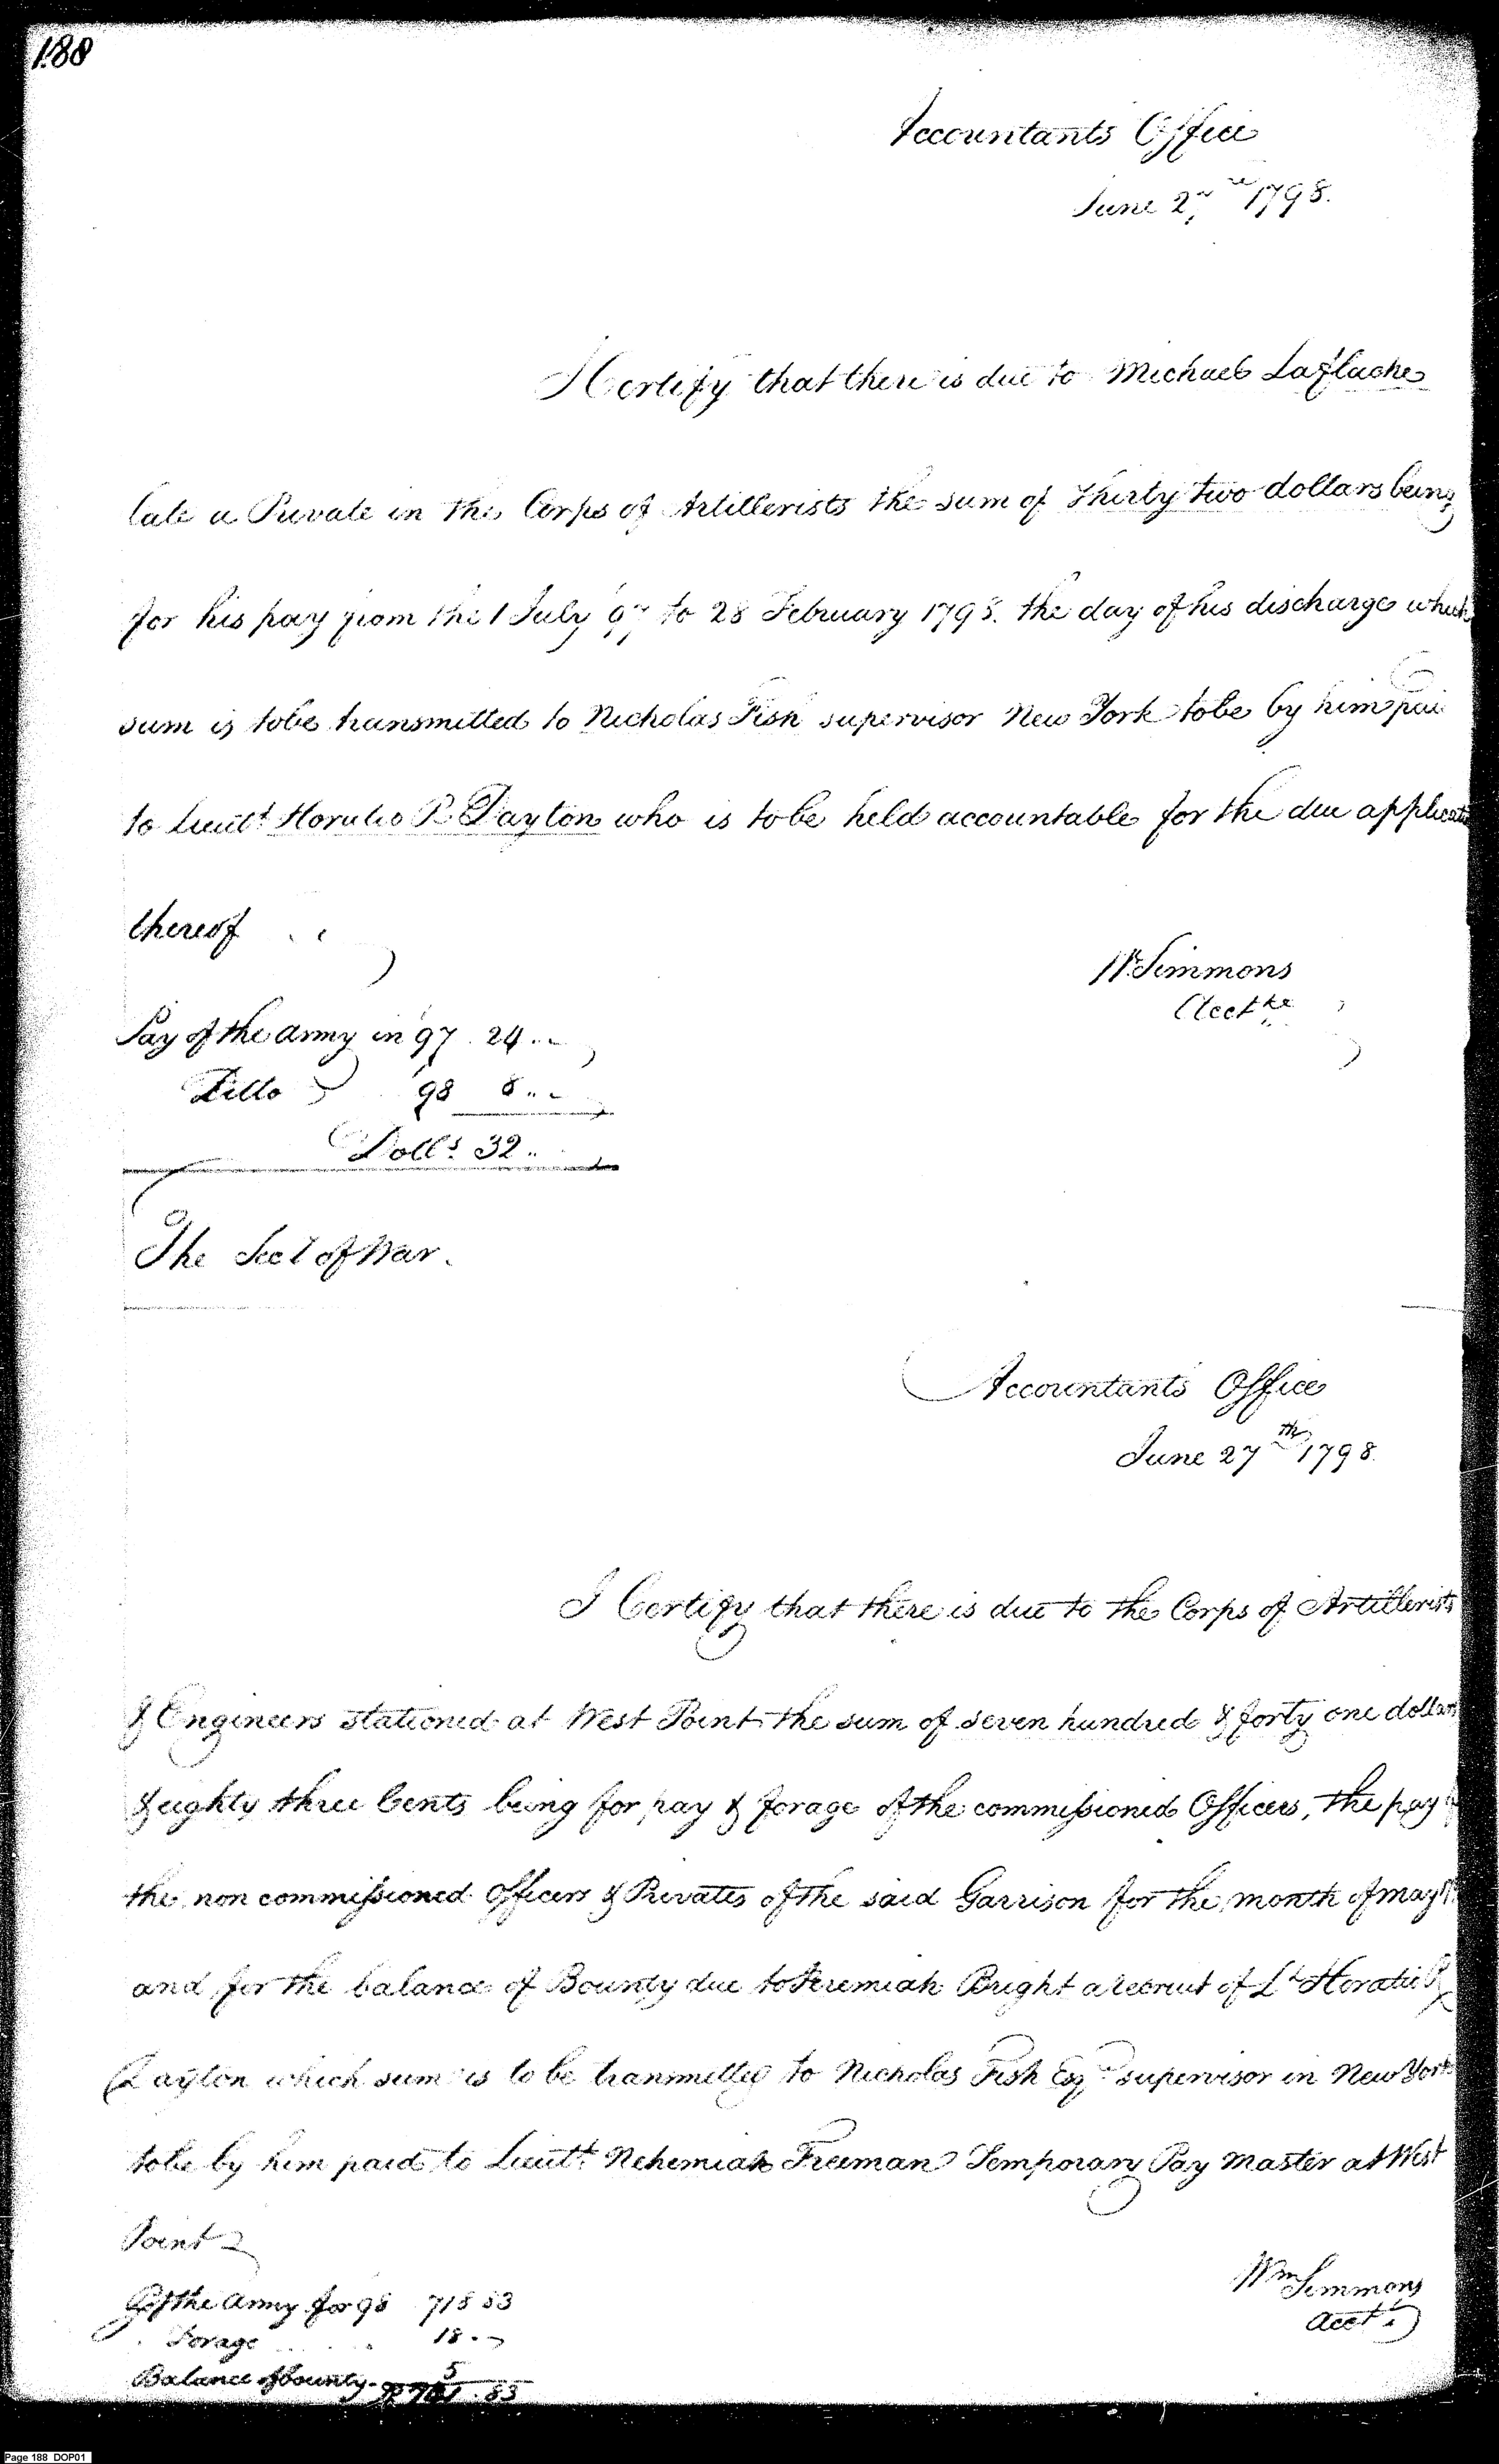 188
Accountants Office
June 27th 1798.
I Certify that there is due to Michael Laflache
late a Private in the Corps of Artillerists the sum of Thirty two dollars being
for his pay from the 1 July 97 to 28 February 1798. the day of his discharge which
sum is tobe transmitted to Nicholas Fish supervisor New York tobe by him pai
to Lieutt Horatio R Dayton who is to be held accountable for the due applicati
thereof
Wm Simmons
Acctt
Pay of the army in '97 . 24 ..
Ditto '98 8 ..
Dolls. 32 ..
The Sect of War.
Accountants Office
June 27th 1798.
I Certify that there is due to the Corps of Artillerists
& Engineers stationed at West Point the sum of seven hundred & forty one dollars
& eighty three Cents being for pay & forage of the commissioned Officers, the pay of
the non commissioned Officers & Privates of the said Garrison for the month of may
and for the balance of Bounty due to Jeremiah Bright a recruit of Lt Horatio R
Dayton which sum is to be tranmitted to Nicholas Fish Esqr supervisor in New York
tobe by him paid to Lieutt. Nehemiah Freeman Temporary Pay Master at West
Point
Wm Simmons
Acctt
P of the Army for 98 718 83
Forage 18 ..
Balance of bounty - 5
D 741 . 83
Page 188 DOP01